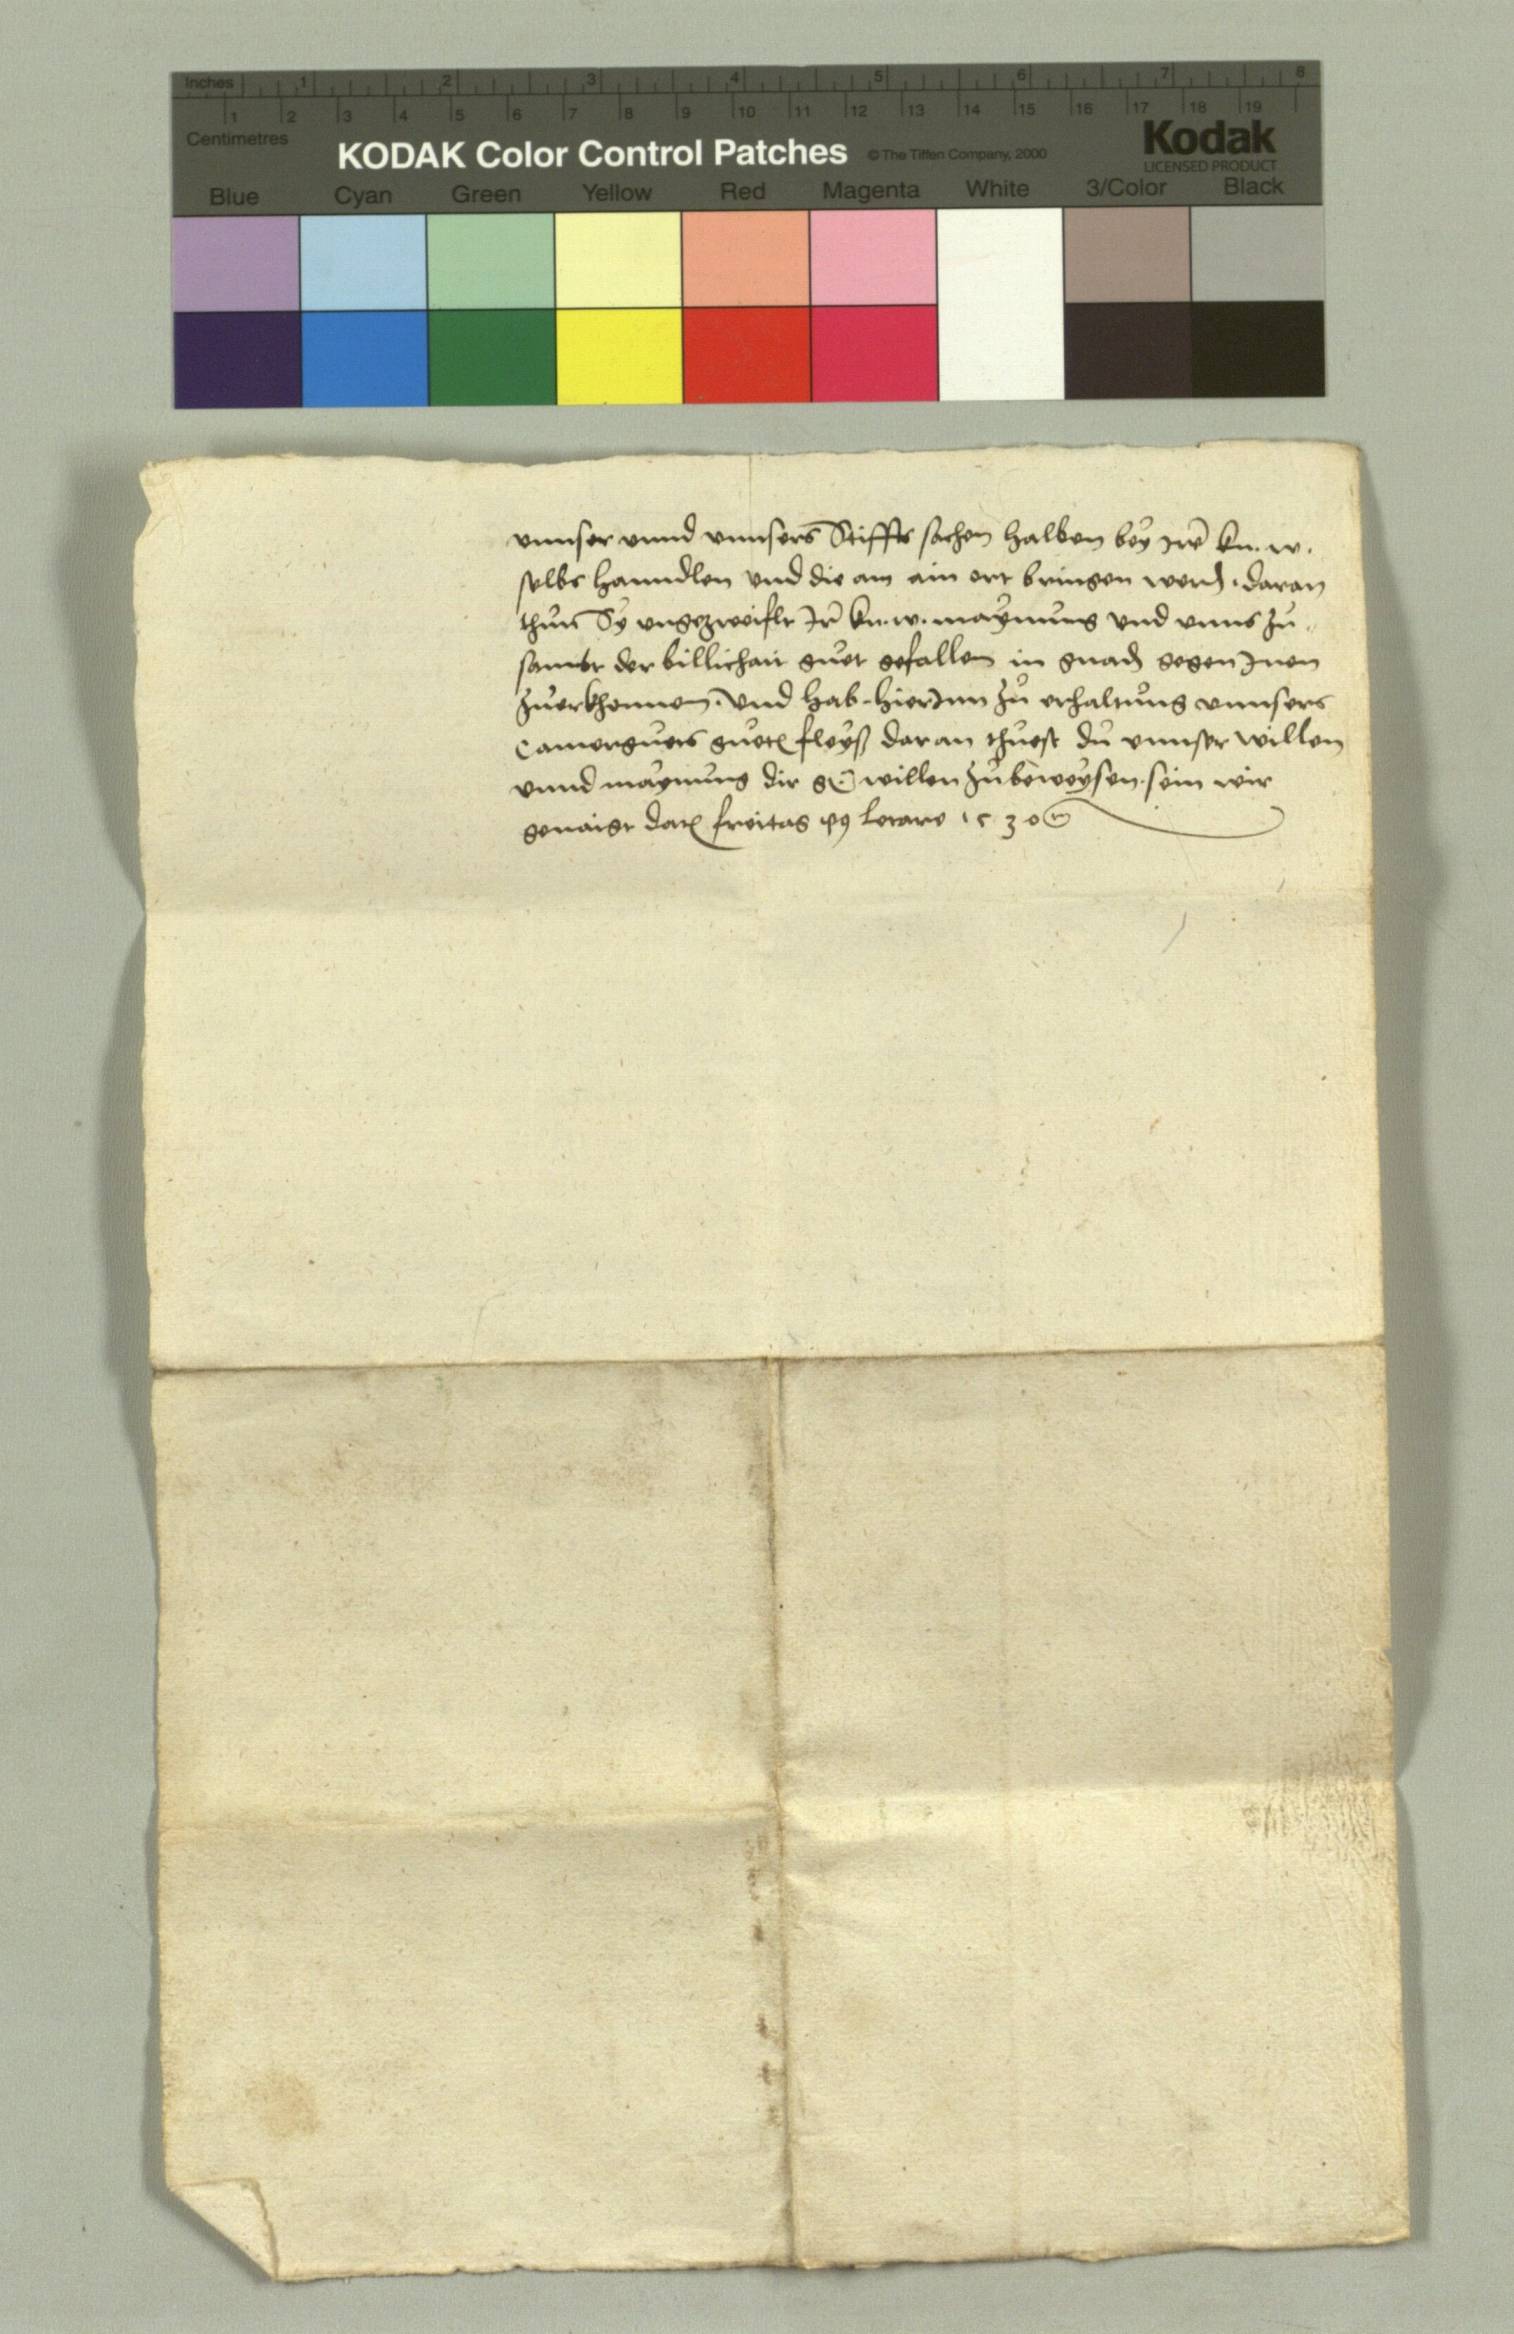 Inches 1 2 3 4 5 6 7 8
1 2 3 4 5 6 7 8 9 10 11 12 13 14 15 16 17 18 19
Centimetres
KODAK Color Control Patches © The Tiffen Company, 2000 Kodak
LICENSED PRODUCT
Blue Cyan Green Yellow Red Magenta White 3/Color Black
vnnser vnnd vnnsers Stiffts sachen halben bey Irer kn. w.
selbs hanndlen vnd die an ain ort bringen werd. daran
thun Sy vngezweiflt Ir kn. w. maynung vnd vnns zu
sambt der billichait guet gefallen in gnad gegen Inen
zuerkhennen. vnd hab hierInn zu erhaltung vnnsers
Camerguets guet fleyß daran thuest du vnnser willen
vnnd maynung dir willen zubeweysen sein wir
genaigt dat freitag letare 1530